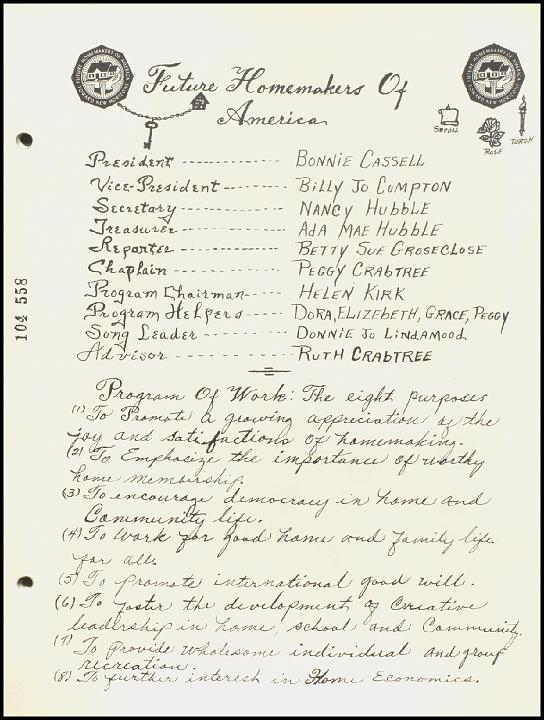 FUTURE HOMEMAKERS OF AMERICA
TOWARD NEW HORIZONS
Future Homemakers Of
America
FUTURE HOMEMAKERS OF AMERICA
TOWARD NEW HORIZONS
SCROLL
ROSE
TORCH
President ------------- BONNIE CASSELL
Vice-President -------- BILLY JO COMPTON
Secretary ------------- NANCY HUBBLE
Treasurer ------------- ADA MAE HUBBLE
Reporter -------------- BETTY SUE GROSECLOSE
Chaplain -------------- PEGGY CRABTREE
Program Chairman ----- HELEN KIRK
Program Helpers ----- DORA, ELIZEBETH, GRACE, PEGGY
Song Leader ---------- DONNIE JO LINDAMOOD
Advisor --------------- RUTH CRABTREE
104 558
Program Of Work: The eight purposes
(1) To Promote a growing appreciation of the
joy and satisfactions of homemaking.
(2) To Emphasize the importance of worthy
home membership.
(3) To encourage democracy in home and
Community life.
(4) To work for good home and family life
for all.
(5) To promote international good will.
(6) To foster the development of Creative
leadership in home, school and Community.
(7) To provide wholesome individual and group
recreation.
(8) To further interest in Home Economics.